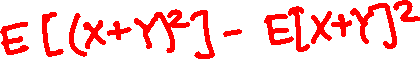 E[(X+Y)²] - E[X+Y]²